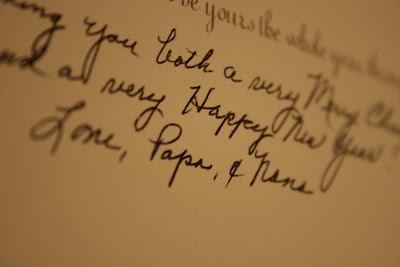 be yours the whole year through
you both a very Merry
and a very Happy New Year
Love, Papa, & Nana